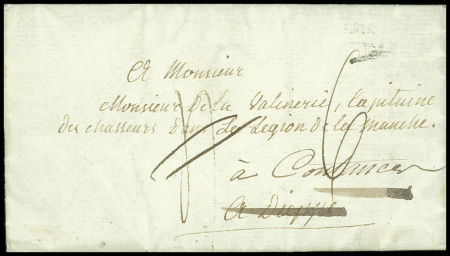 A Monsieur
Monsieur de la Valinerie, Capitaine
des chasseurs dans la Légion de la manche.
à Coutances
A Dieppe